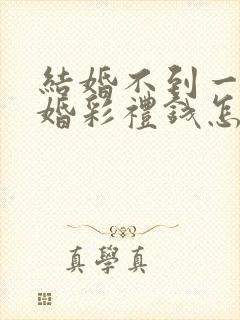 結婚不到一
婚彩禮錢怎
真學真